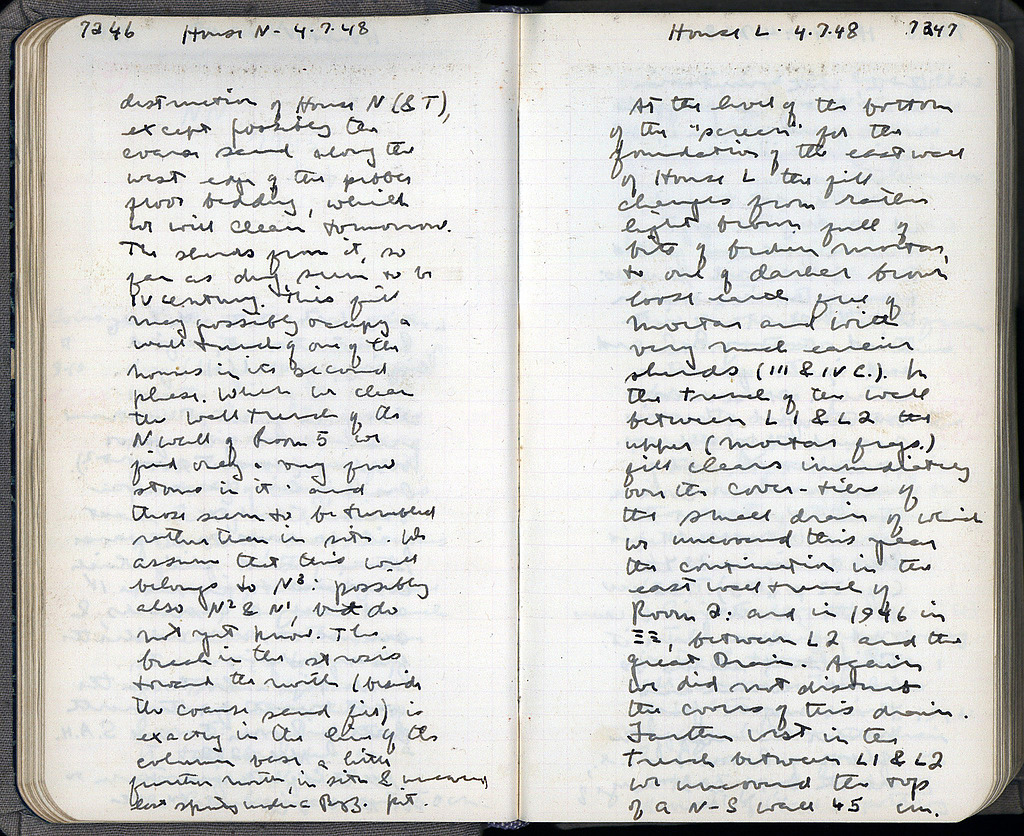 7246 House N - 4.7.48
destruction of House N (& T),
except possibly the
coarse sand along the
west edge of the pebble
floor bedding, which
we will clean tomorrow.
The sherds from it, so
far as dug seem to be
IV century. This fill
may possibly occupy a
wall trench of one of the
houses in its second
phase. When we clean
the wall trench of the
N wall of Room 5 we
find only a very few
stones in it - and
those seem to be tumbled
rather than in situ. We
assume that this wall
belongs to N³: possibly
also N² & N¹, but do
not yet know. The
break in the strosis
toward the north (beside
the coarse sand fill) is
exactly in the line of the
column base a little
further north, in situ &
last spring under a Byz. pit.
House L - 4.7.48 7247
At the level of the bottom
of the "screen" for the
foundation of the east wall
of House L the fill
changes from rather
light brown full of
bits of broken mortar,
to one of darker brown
loose earth free of
mortar and with
very much earlier
sherds (III & IV C.). In
the trench of the wall
between L1 & L2 the
upper (mortar frags.)
fill clears immediately
over the cover-tiles of
the small drain of which
we uncovered this year
the continuation in the
east wall trench of
Room 2. and in 1946 in
ΞΞ, between L2 and the
great Drain. Again
we did not disturb
the covers of this drain.
Farther west in the
trench between L1 & L2
we uncovered the top
of a N-S wall 45 cm.